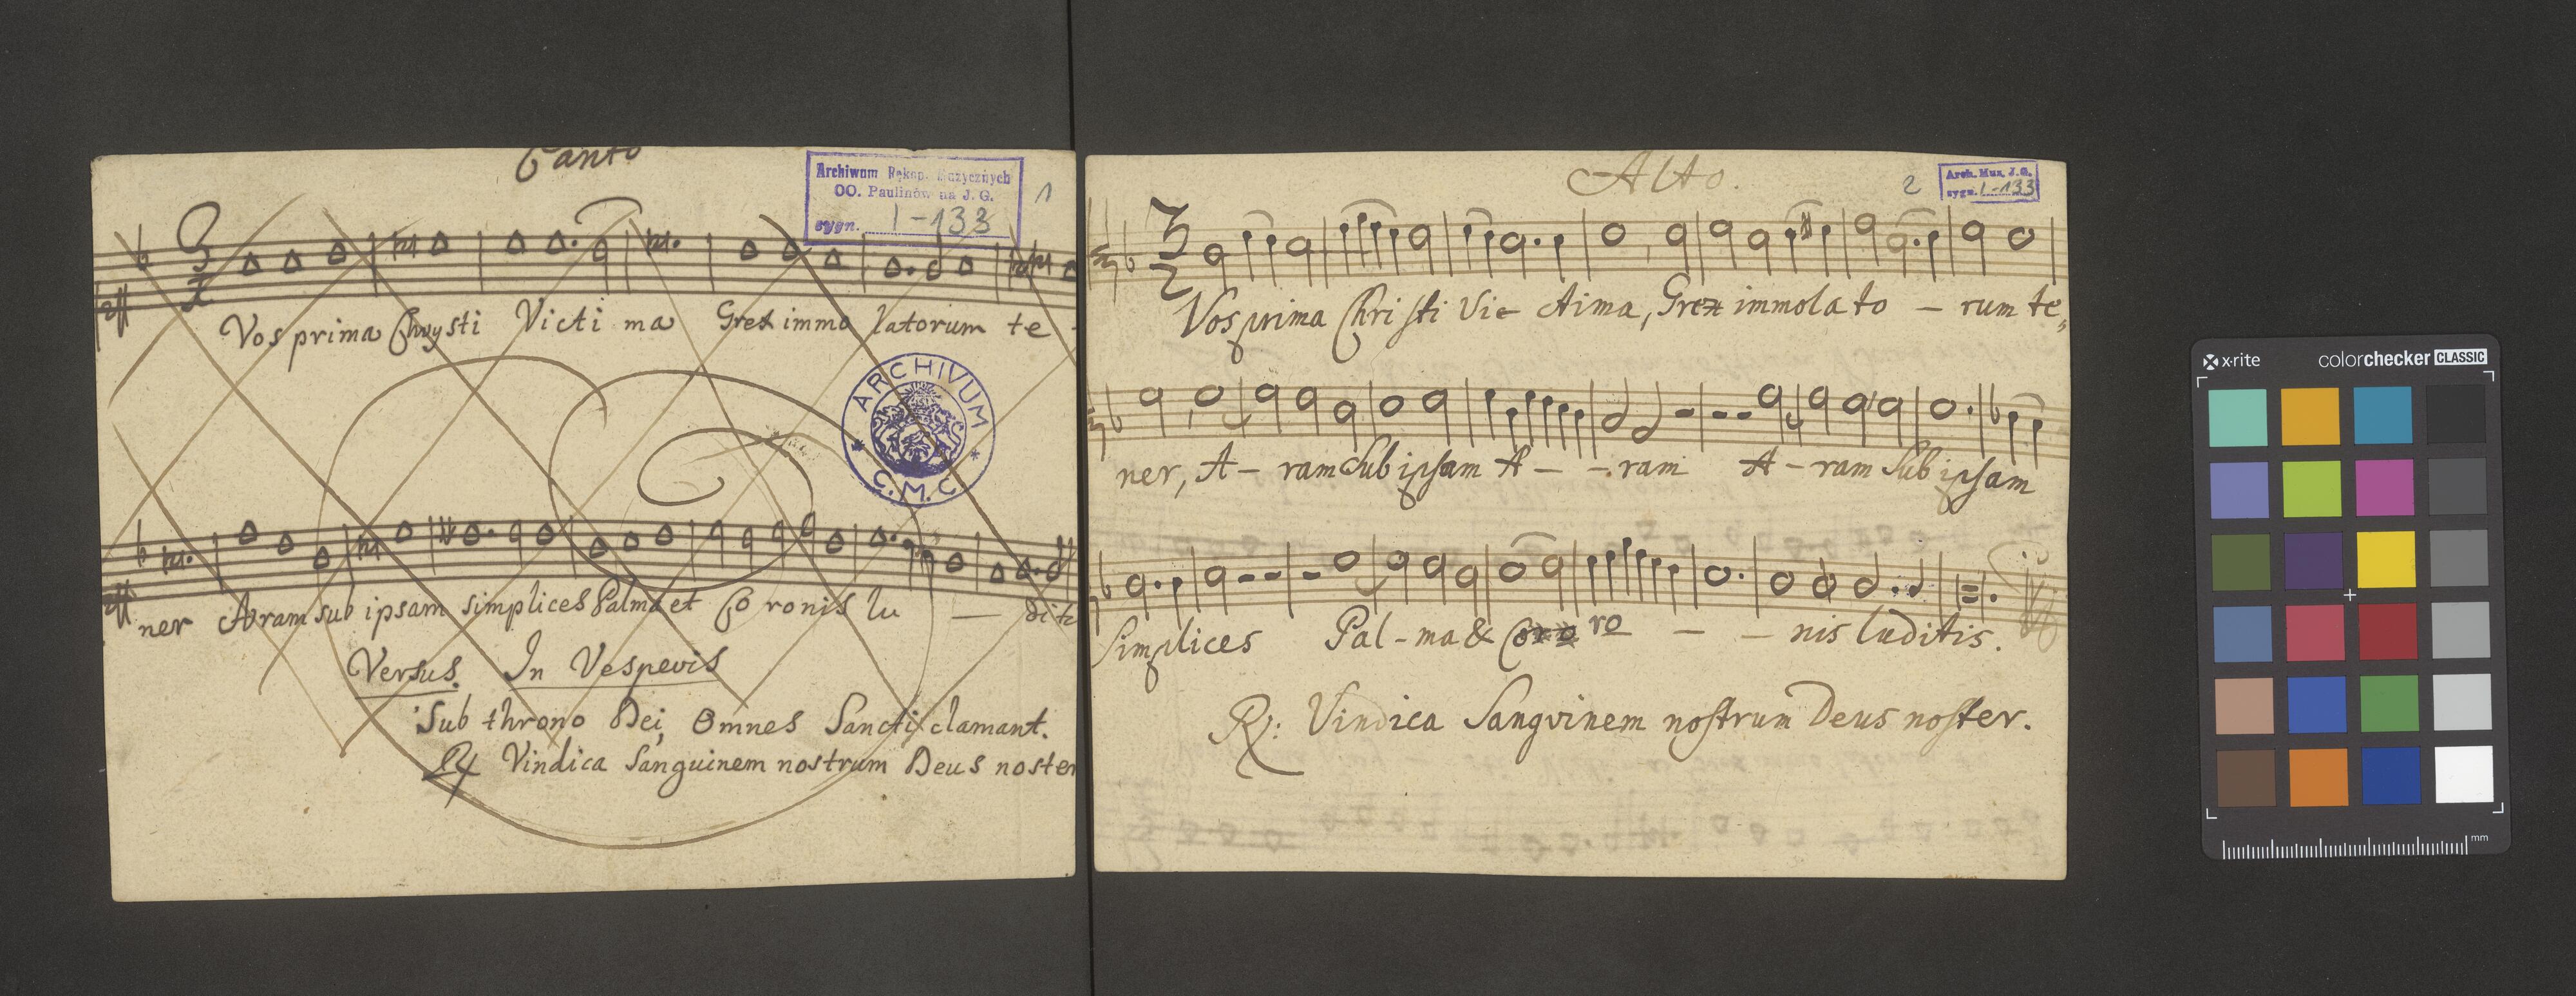 Canto
Archiwum Rękop. Muzycznych
OO. Paulinów na J. G.
sygn. I-133
1
Vos prima Chrysti Victi ma Grex immo latorum te -
ARCHIVUM
* C.M.C. *
ner Aram sub ipsam simplices Palma et Co ronis lu — dite
Versus. In Vesperis
Sub throno Dei, Omnes Sancti clamant.
℟ Vindica Sanguinem nostrum Deus noster
Alto.
2
Arch. Muz. J. G.
sygn. I-133
3
2
Vos prima Christi Vic tima, Grex immola to - rum te,
ner, A - ram Sub ipsam A - - ram A - ram Sub ipsam
Simplices Pal - ma & Co ro - - nis luditis.
R: Vindica Sangvinem nostrum Deus noster.
x-rite colorchecker CLASSIC
mm